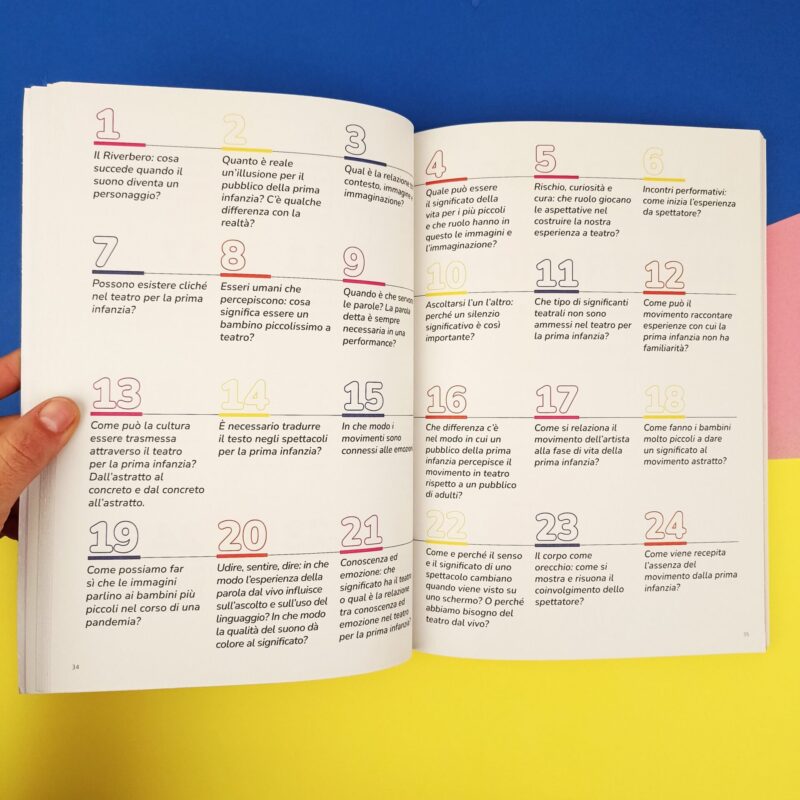 1
Il Riverbero: cosa
succede quando il
suono diventa un
personaggio?
2
Quanto è reale
un'illusione per il
pubblico della prima
infanzia? C'è qualche
differenza con la
realtà?
3
Qual è la relazione
contesto, immagine
immaginazione?
7
Possono esistere cliché
nel teatro per la prima
infanzia?
8
Esseri umani che
percepiscono: cosa
significa essere un
bambino piccolissimo a
teatro?
9
Quando è che servono
le parole? La parola
detta è sempre
necessaria in una
performance?
13
Come può la cultura
essere trasmessa
attraverso il teatro
per la prima infanzia?
Dall'astratto al
concreto e dal concreto
all'astratto.
14
È necessario tradurre
il testo negli spettacoli
per la prima infanzia?
15
In che modo i
movimenti sono
connessi alle
19
Come possiamo far
sì che le immagini
parlino ai bambini più
piccoli nel corso di una
pandemia?
20
Udire, sentire, dire: in che
modo l'esperienza della
parola dal vivo influisce
sull'ascolto e sull'uso del
linguaggio? In che modo
la qualità del suono dà
colore al significato?
21
Conoscenza ed
emozione: che
significato ha il teatro
o qual è la relazione
tra conoscenza ed
emozione nel teatro
per la prima infanzia?
34
4
Quale può essere
il significato della
vita per i più piccoli
e che ruolo hanno in
questo le immagini e
l'immaginazione?
5
Rischio, curiosità e
cura: che ruolo giocano
le aspettative nel
costruire la nostra
esperienza a teatro?
6
Incontri performativi:
come inizia l'esperienza
da spettatore?
10
Ascoltarsi l'un l'altro:
perché un silenzio
significativo è così
importante?
11
Che tipo di significanti
teatrali non sono
ammessi nel teatro per
la prima infanzia?
12
Come può il
movimento raccontare
esperienze con cui la
prima infanzia non ha
familiarità?
16
Che differenza c'è
nel modo in cui un
pubblico della prima
infanzia percepisce il
movimento in teatro
rispetto a un pubblico
di adulti?
17
Come si relaziona il
movimento dell'artista
alla fase di vita della
prima infanzia?
18
Come fanno i bambini
molto piccoli a dare
un significato al
movimento astratto?
22
Come e perché il senso
e il significato di uno
spettacolo cambiano
quando viene visto su
uno schermo? O perché
abbiamo bisogno del
teatro dal vivo?
23
Il corpo come
orecchio: come si
mostra e risuona il
coinvolgimento dello
spettatore?
24
Come viene recepita
l'assenza del
movimento dalla prima
infanzia?
35